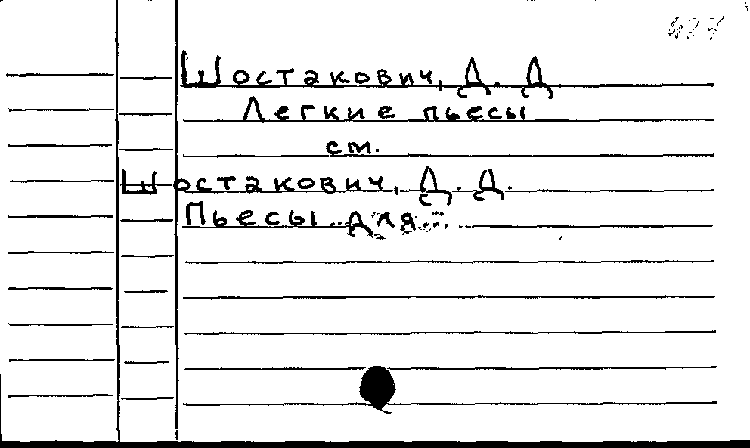 Шостакович, Д. Д.
Легкие пьесы
см.
Шостакович, Д. Д.
Пьесы для